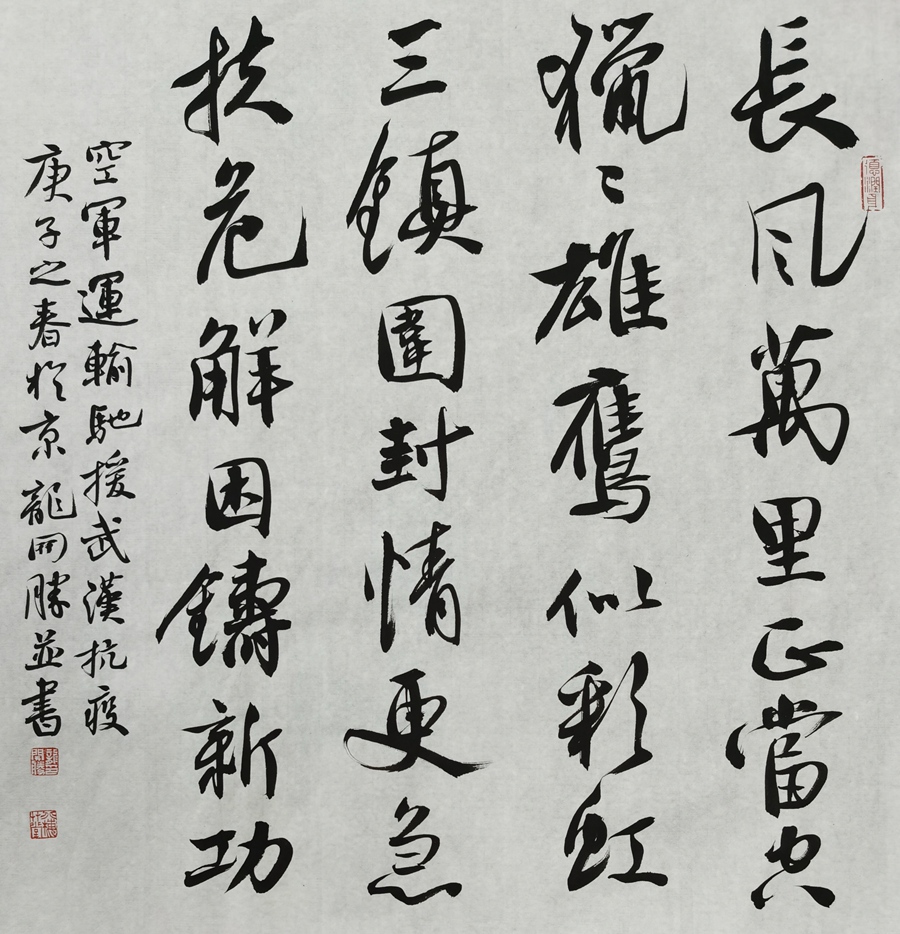 長风萬里正當空
獵〻雄鷹似彩虹
三鎮圍封情更急
扶危解困鑄新功
空軍運輸馳援武漢抗疫
庚子之春於京龍開勝並書